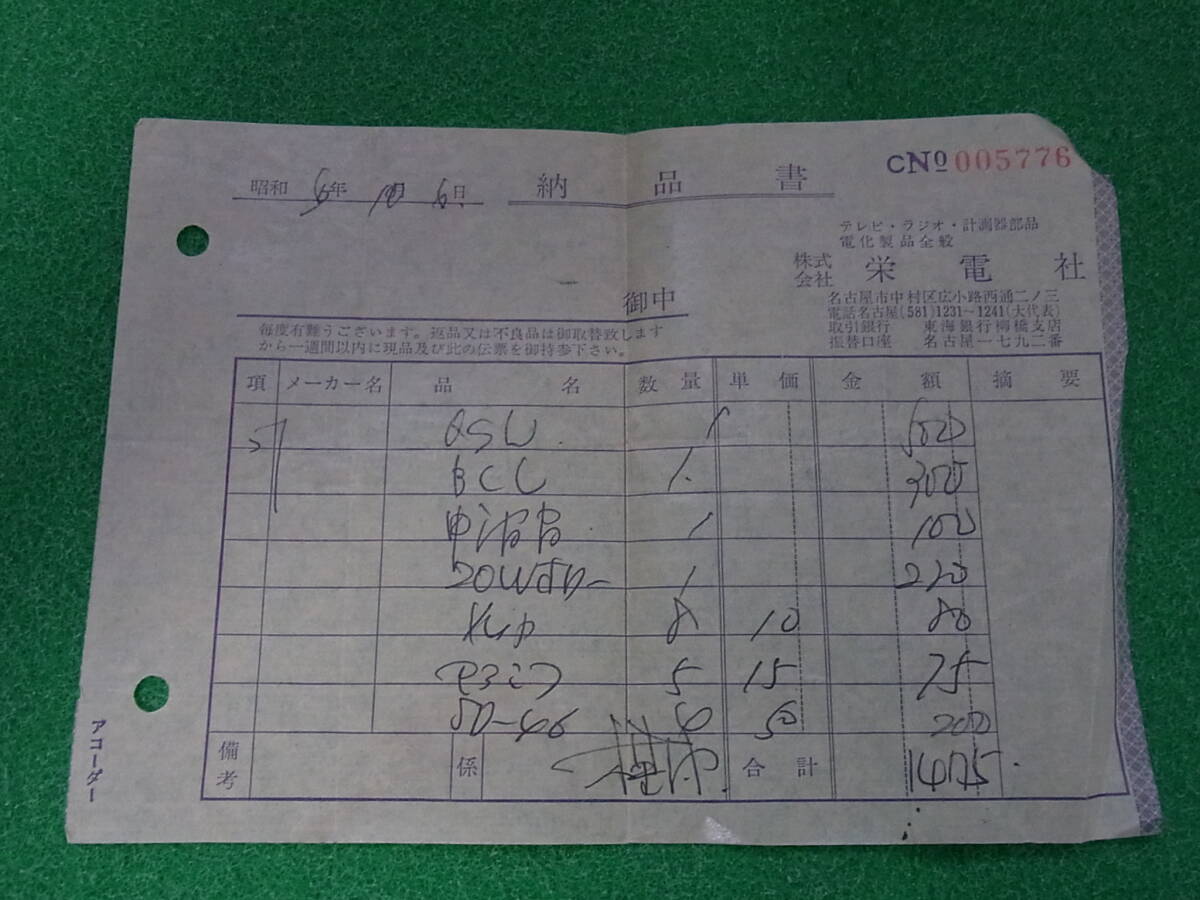 CNo 005776
昭和 年 10月 6日 納品書
テレビ・ラジオ・計測器部品
電化製品全般
株式会社 栄電社
御中
名古屋市中村区広小路西通二ノ三
電話名古屋(581)1231~1241(大代表)
取引銀行 東海銀行柳橋支店
振替口座 名古屋一七九二番
毎度有難うございます。返品又は不良品は御取替致します
から一週間以内に現品及び此の伝票を御持参下さい。
項 メーカー名 品名 数量 単価 金額 摘要
1 500
BCL 1. 300
1 100
20W 1
8 10 80
5 15 75
50-46 50 200
備考 係 合計 1475.
アコーダー